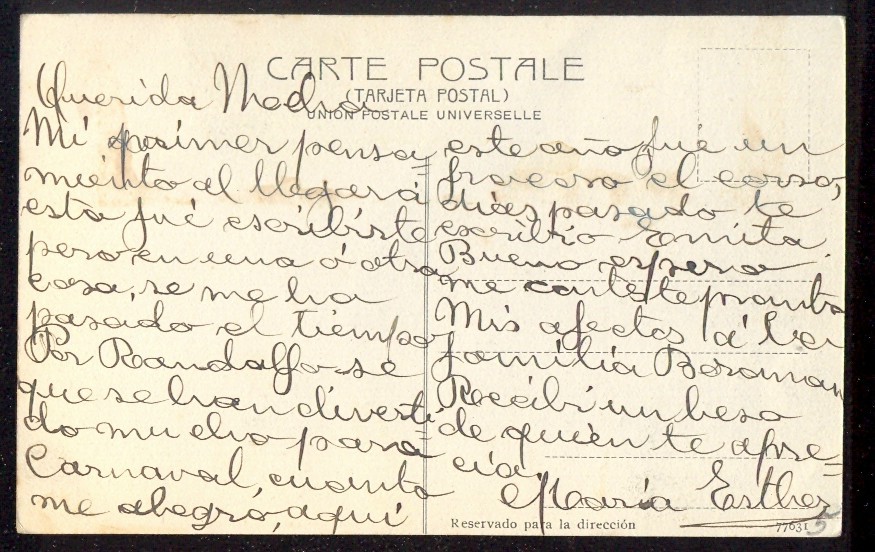 CARTE POSTALE
(TARJETA POSTAL)
UNION POSTALE UNIVERSELLE
Querida
Mi primer pensa=
miento al llegar á
esta fué escribirste
pero en una ó otra
cosa, se me ha
pasado el tiempo
Por Randalfo se
que se han diverti=
do mucho para
Carnaval, cuanto
me alegro, aqui
este año fué un
fracaso el corso,
dias pasado te
escribio Emita
Bueno espero
me conteste pronto
Mis afectos á la
familia
Recibi un beso
de quien te apre=
cia
Maria Esther
Reservado para la dirección
77631